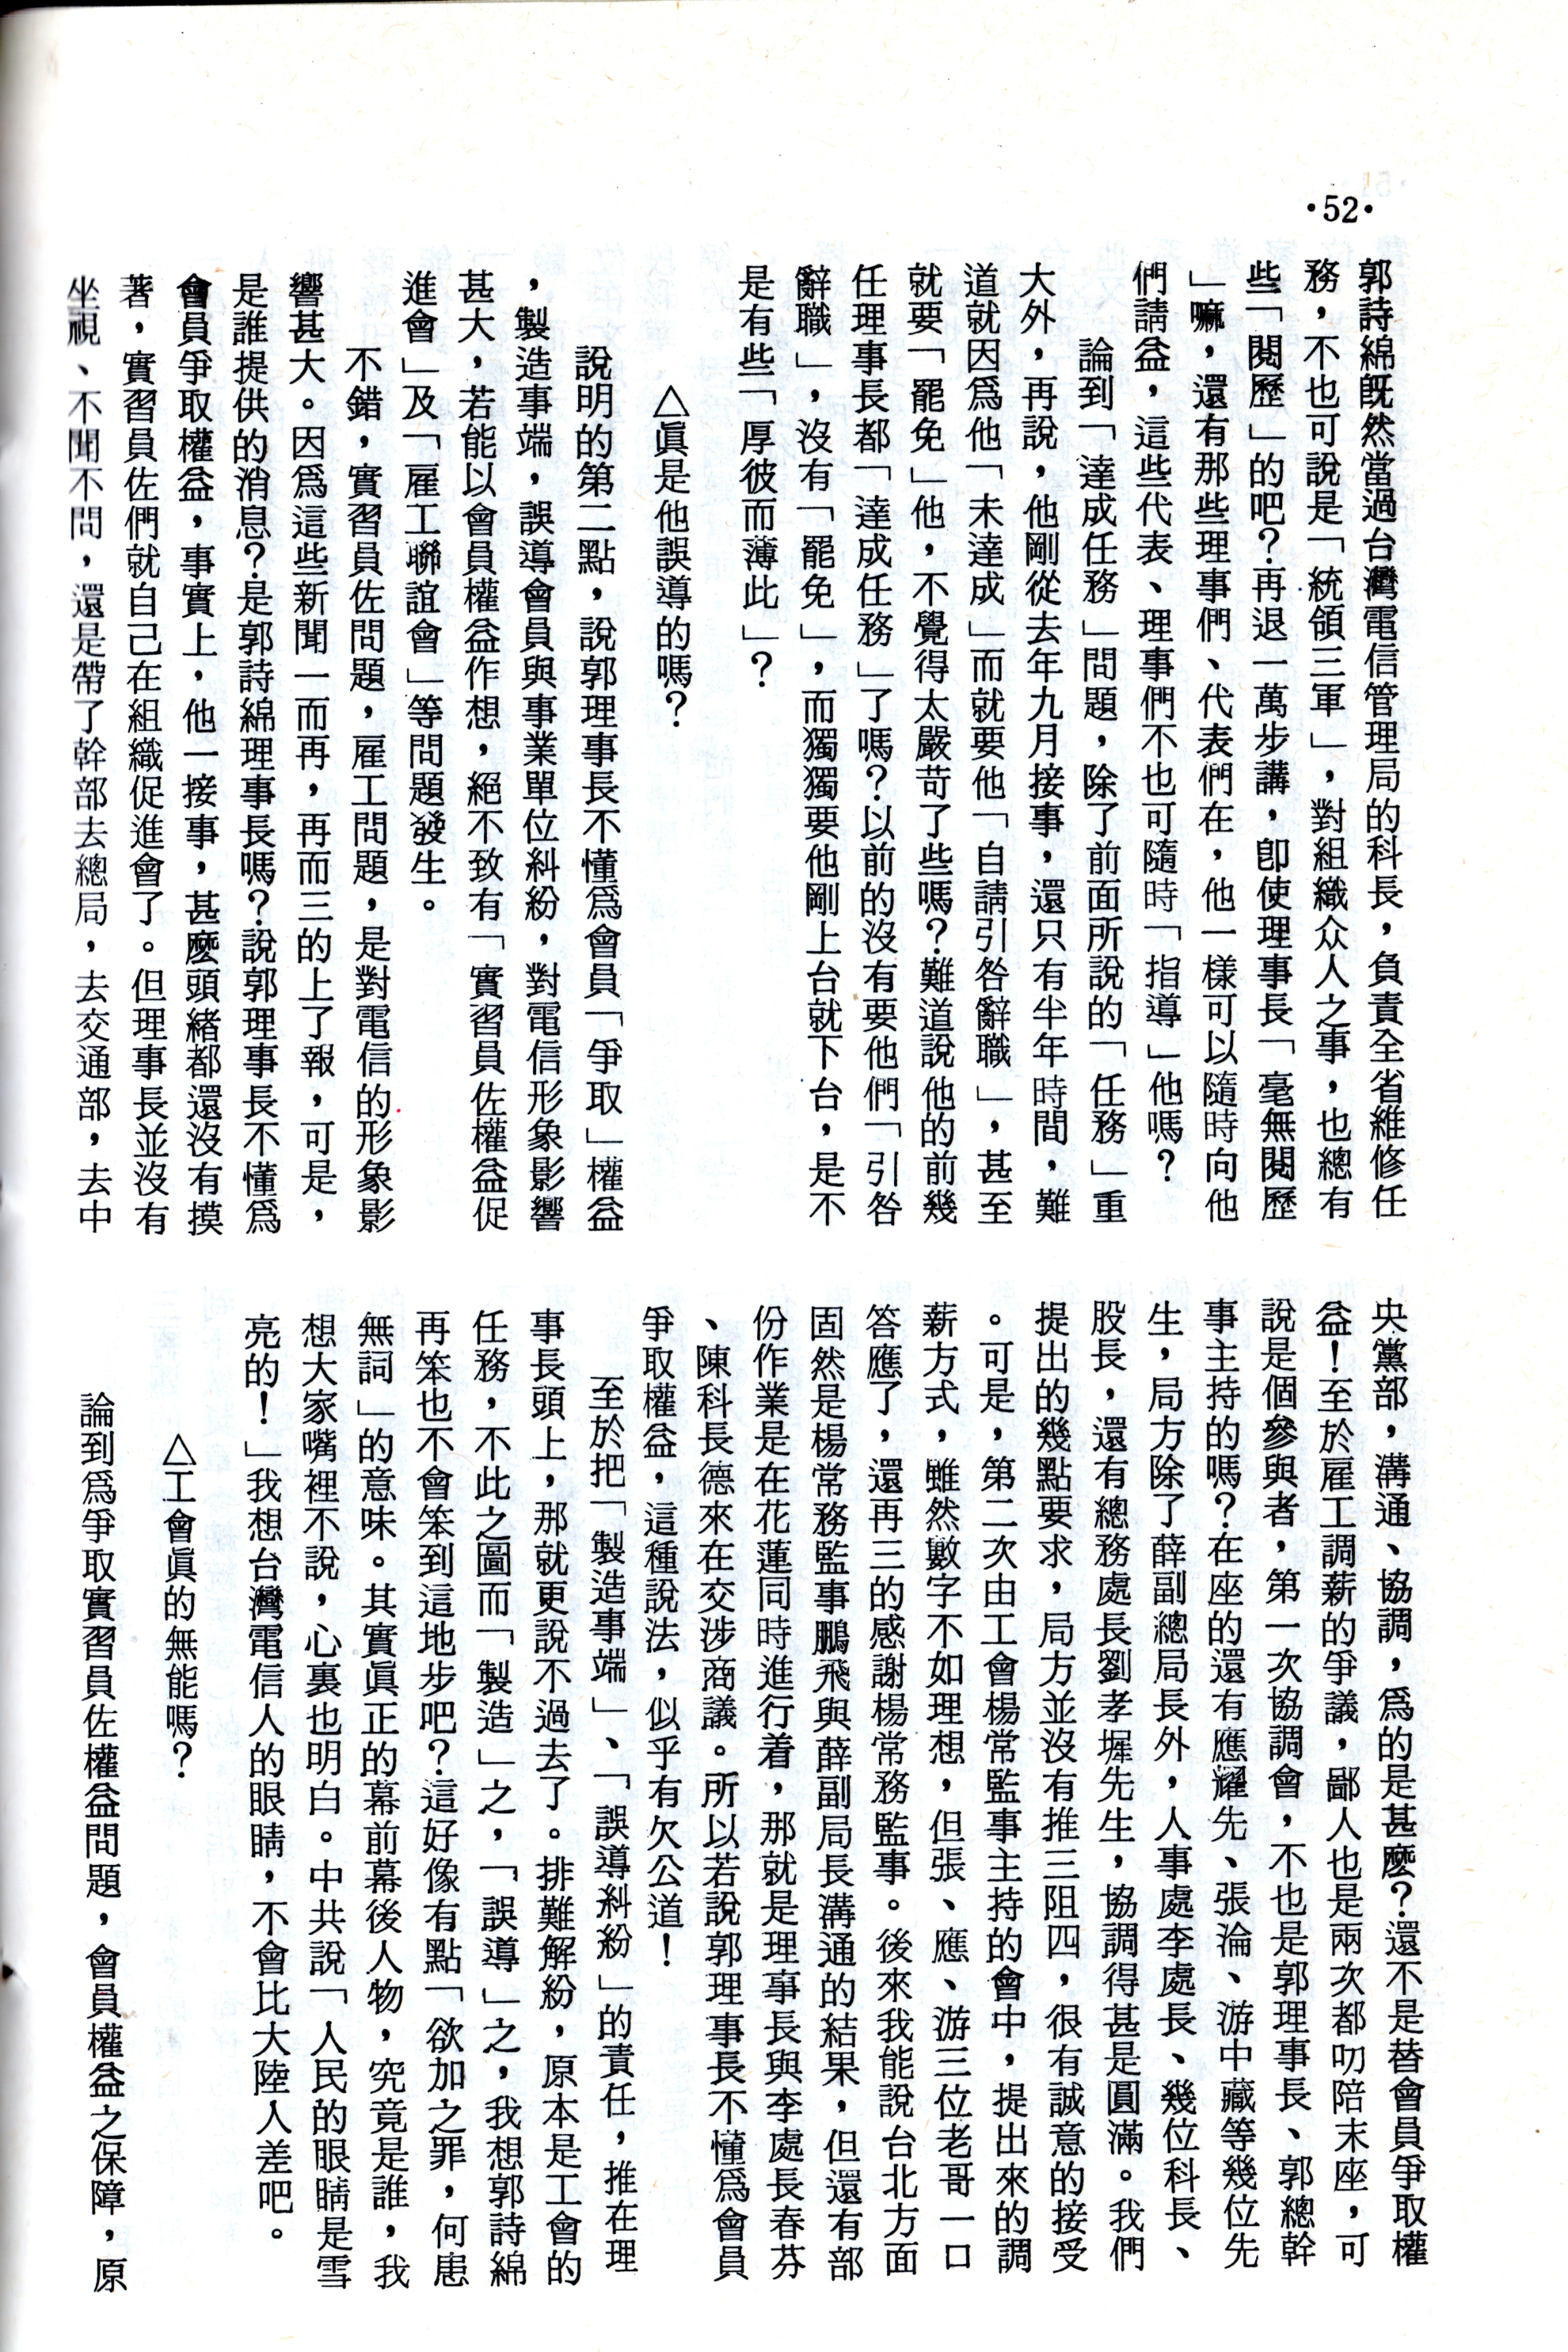 •52•
郭詩綿旣然當過台灣電信管理局的科長，負責全省維修任
務，不也可說是「統領三軍」，對組織众人之事，也總有
些「閱歷」的吧？再退一萬步講，卽使理事長「毫無閱歷
」嘛，還有那些理事們、代表們在，他一樣可以隨時向他
們請益，這些代表、理事們不也可隨時「指導」他嗎？
論到「達成任務」問題，除了前面所說的「任務」重
大外，再說，他剛從去年九月接事，還只有半年時間，難
道就因爲他「未達成」而就要他「自請引咎辭職」，甚至
就要「罷免」他，不覺得太嚴苛了些嗎？難道說他的前幾
任理事長都「達成任務」了嗎？以前的沒有要他們「引咎
辭職」，沒有「罷免」，而獨獨要他剛上台就下台，是不
是有些「厚彼而薄此」？
△眞是他誤導的嗎？
說明的第二點，說郭理事長不懂爲會員「爭取」權益
，製造事端，誤導會員與事業單位糾紛，對電信形象影響
甚大，若能以會員權益作想，絕不致有「實習員佐權益促
進會」及「雇工聯誼會」等問題發生。
不錯，實習員佐問題，雇工問題，是對電信的形象影
響甚大。因爲這些新聞一而再，再而三的上了報，可是，
是誰提供的消息？是郭詩綿理事長嗎？說郭理事長不懂爲
會員爭取權益，事實上，他一接事，甚麼頭緒都還沒有摸
著，實習員佐們就自己在組織促進會了。但理事長並沒有
坐視、不聞不問，還是帶了幹部去總局，去交通部，去中
央黨部，溝通、協調，爲的是甚麼？還不是替會員爭取權
益！至於雇工調薪的爭議，鄙人也是兩次都叨陪末座，可
說是個參與者，第一次協調會，不也是郭理事長、郭總幹
事主持的嗎？在座的還有應耀先、張淪、游中藏等幾位先
生，局方除了薛副總局長外，人事處李處長、幾位科長、
股長，還有總務處長劉孝墀先生，協調得甚是圓滿。我們
提出的幾點要求，局方並沒有推三阻四，很有誠意的接受
。可是，第二次由工會楊常監事主持的會中，提出來的調
薪方式，雖然數字不如理想，但張、應、游三位老哥一口
答應了，還再三的感謝楊常務監事。後來我能說台北方面
固然是楊常務監事鵬飛與薛副局長溝通的結果，但還有部
份作業是在花蓮同時進行着，那就是理事長與李處長春芬
、陳科長德來在交涉商議。所以若說郭理事長不懂爲會員
爭取權益，這種說法，似乎有欠公道！
至於把「製造事端」、「誤導糾紛」的責任，推在理
事長頭上，那就更說不過去了。排難解紛，原本是工會的
任務，不此之圖而「製造」之，「誤導」之，我想郭詩綿
再笨也不會笨到這地步吧？這好像有點「欲加之罪，何患
無詞」的意味。其實眞正的幕前幕後人物，究竟是誰，我
想大家嘴裡不說，心裏也明白。中共說「人民的眼睛是雪
亮的！」我想台灣電信人的眼睛，不會比大陸人差吧。
△工會眞的無能嗎？
論到爲爭取實習員佐權益問題，會員權益之保障，原